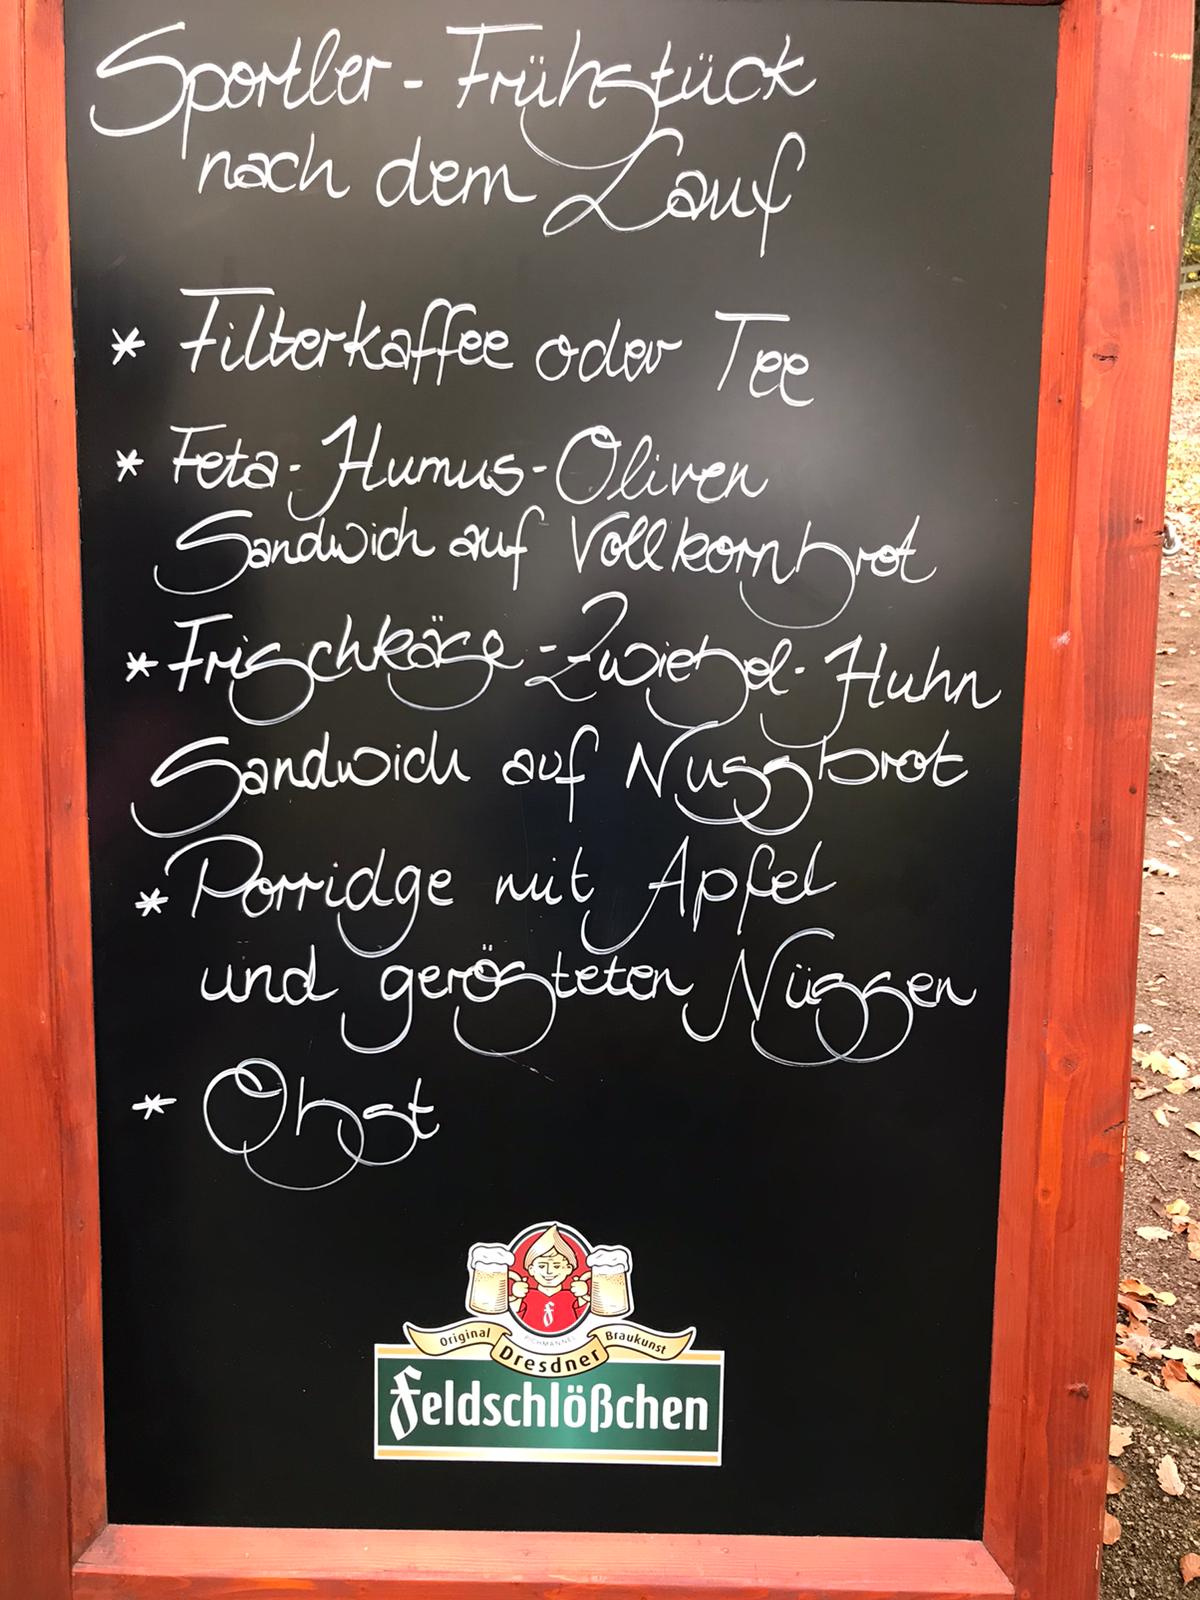 Sportler-Frühstück
nach dem Lauf
* Filterkaffee oder Tee
* Feta-Humus-Oliven
Sandwich auf Vollkornbrot
* Frischkäse-Zwiebel-Huhn
Sandwich auf Nussbrot
* Porridge mit Apfel
und gerösteten Nüssen
* Obst
PICHMÄNNEL
Original Dresdner Braukunst
Feldschlößchen